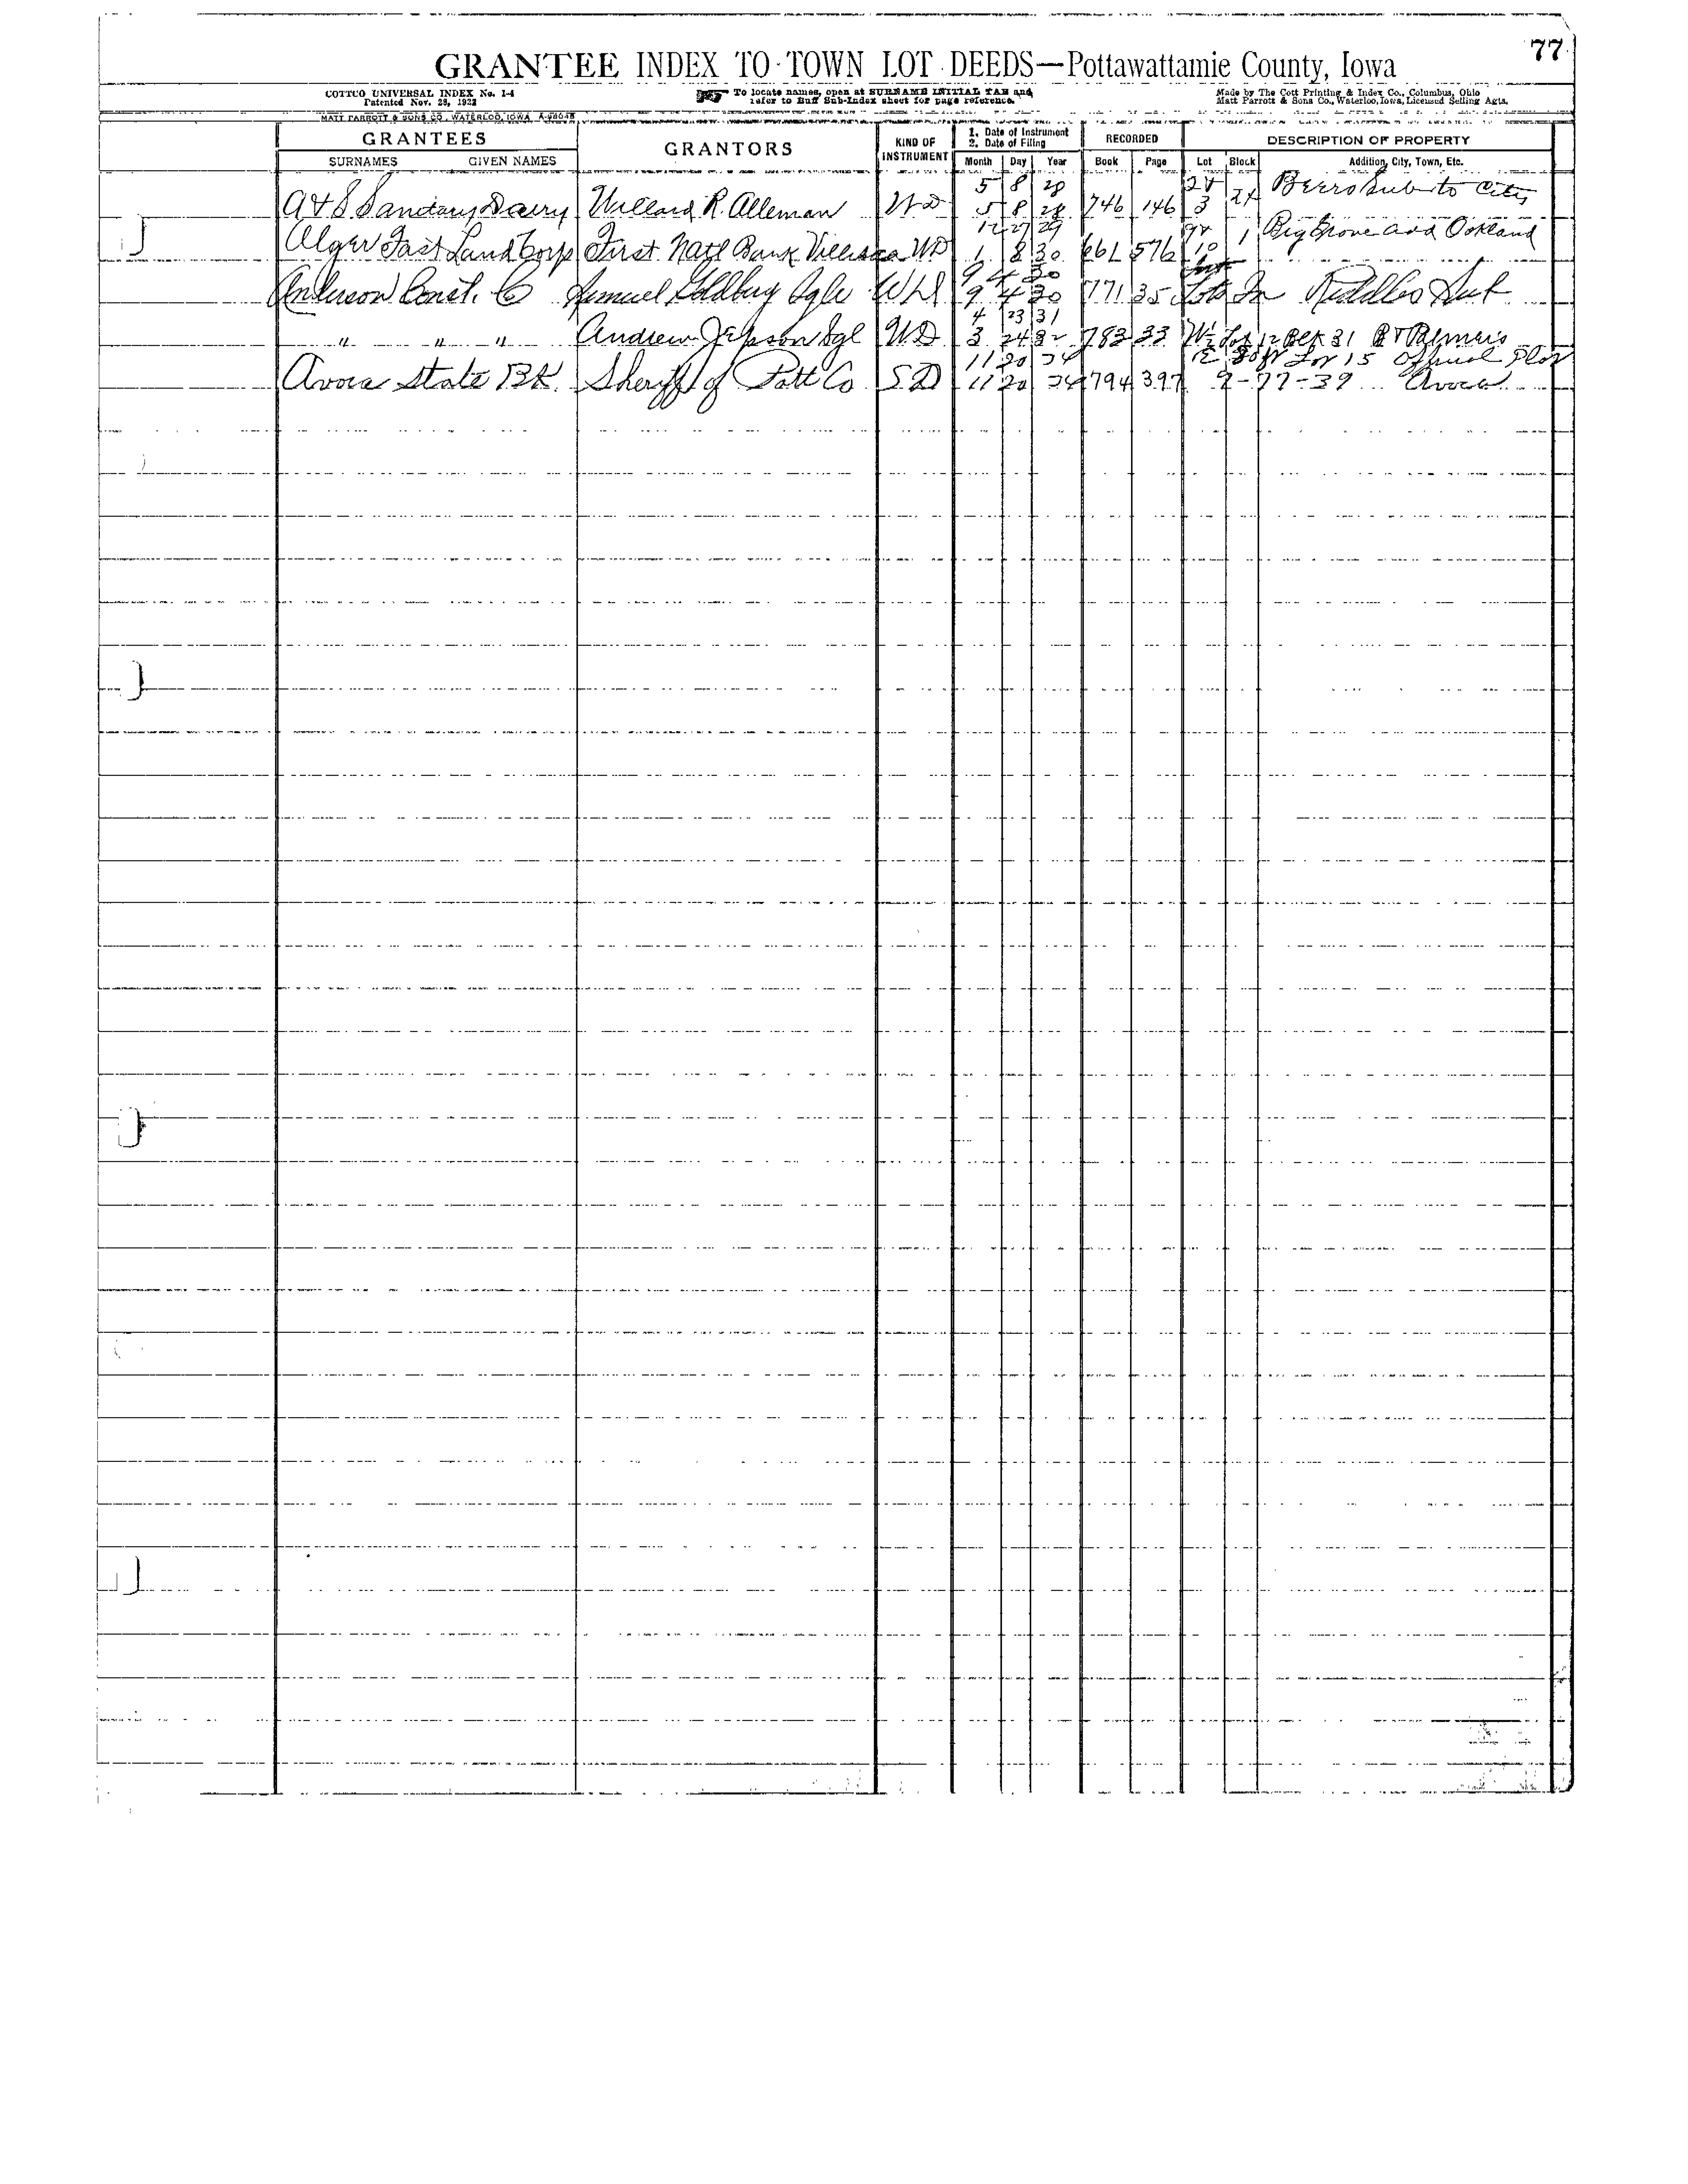 77
GRANTEE INDEX TO TOWN LOT DEEDS—Pottawattamie County, Iowa
COTTCO UNIVERSAL INDEX No. 1-4
Patented Nov. 28, 1922
To locate names, open at SURNAME INITIAL TAB and
refer to Buff Sub-Index sheet for page reference.
Made by The Cott Printing & Index Co., Columbus, Ohio
Matt Parrott & Sons Co., Waterloo, Iowa, Licensed Selling Agts.
MATT PARROTT & SONS CO., WATERLOO, IOWA
GRANTEES
SURNAMES GIVEN NAMES
GRANTORS
KIND OF
INSTRUMENT
1. Date of Instrument
2. Date of Filing
Month Day Year
RECORDED
Book Page
DESCRIPTION OF PROPERTY
Lot Block Addition, City, Town, Etc.
5 8 28 Beers Sub to City
A & S Sanitary Dairy Willard R. Alleman WD 5 8 28 746 146 3
12 27 29 1 Big Grove add Oakland
Alger Fast Land Corp First Natl Bank Villisca WD 1 8 30 661 576 10
9 4 30
Anderson Const. Co Samuel Goldberg Sgle WD 9 4 30 771 35 Lots In Riddles Sub
4 23 31
" " " Andrew Jepson Sgl WD 3 24 32 783 33 W½ Lot 12 Blk 31 Palmers
11 20 34 Lot 15 Official Plat
Avoca State BK. Sheriff of Pott Co SD 11 20 34 794 397 9-77-39 Avoca